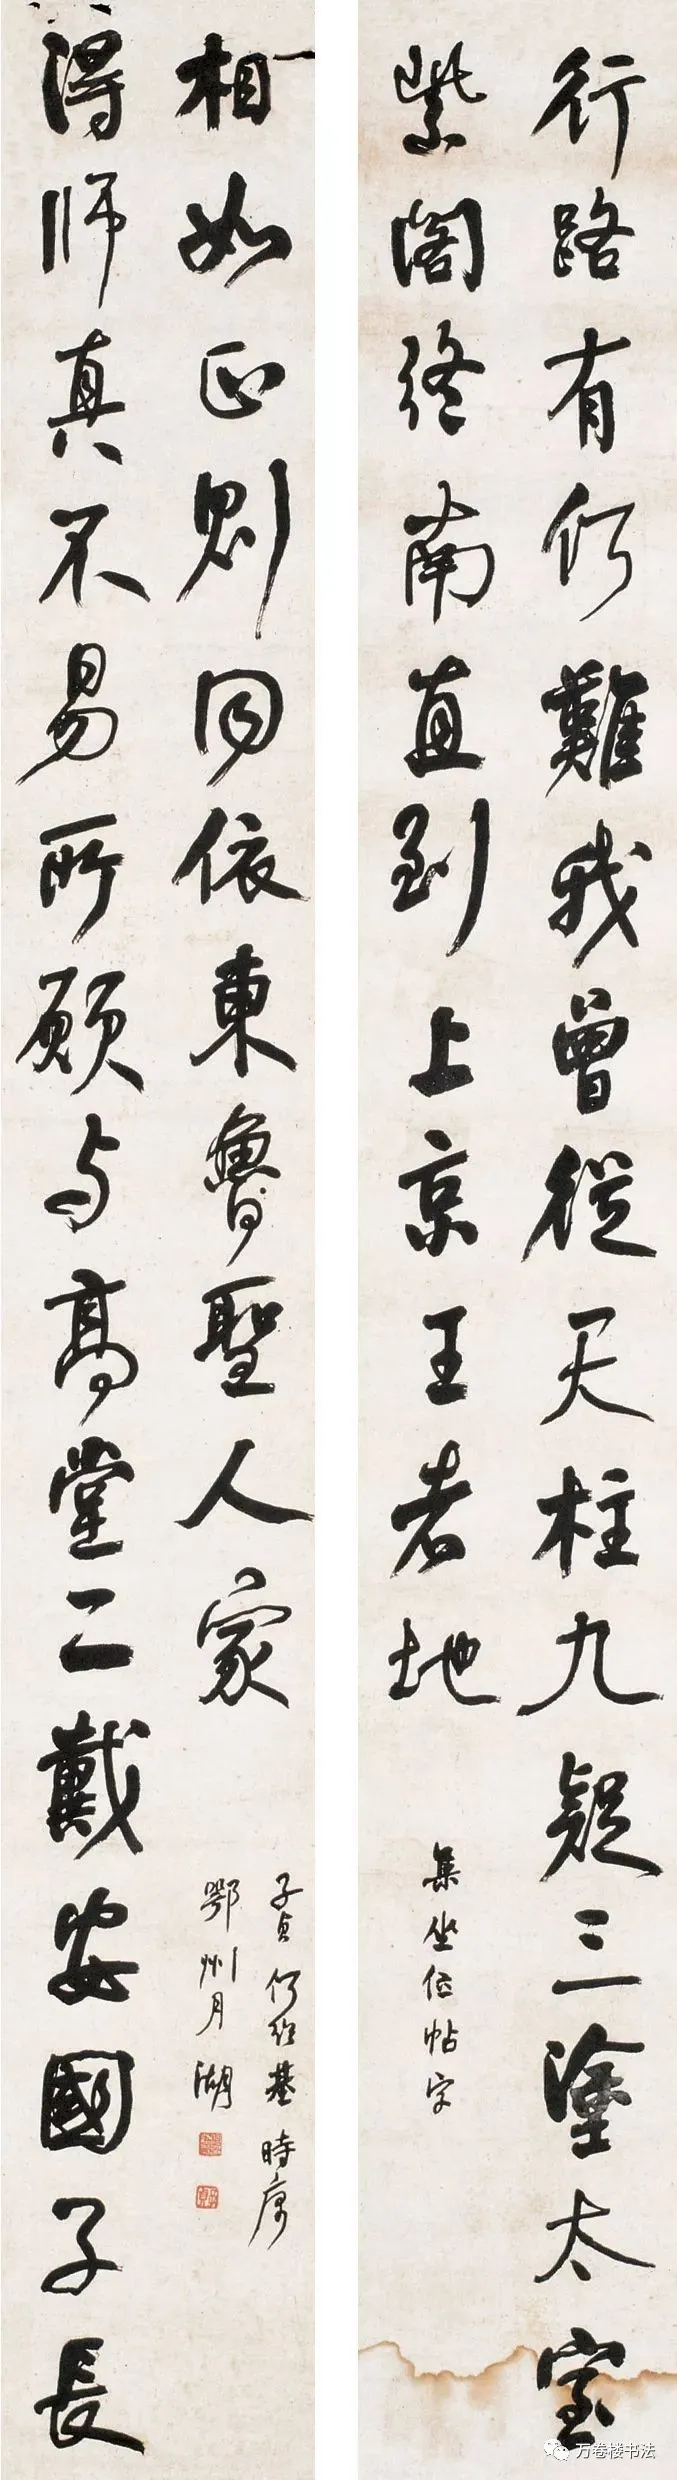 行路有何難我曾從天柱九疑三塗太室
紫閣終南直到上京王者地
集坐位帖字
得師真不易所願与高堂二戴安國子長
相如正則同依東魯聖人家
子貞何紹基時寓
鄂州月湖
万卷楼书法